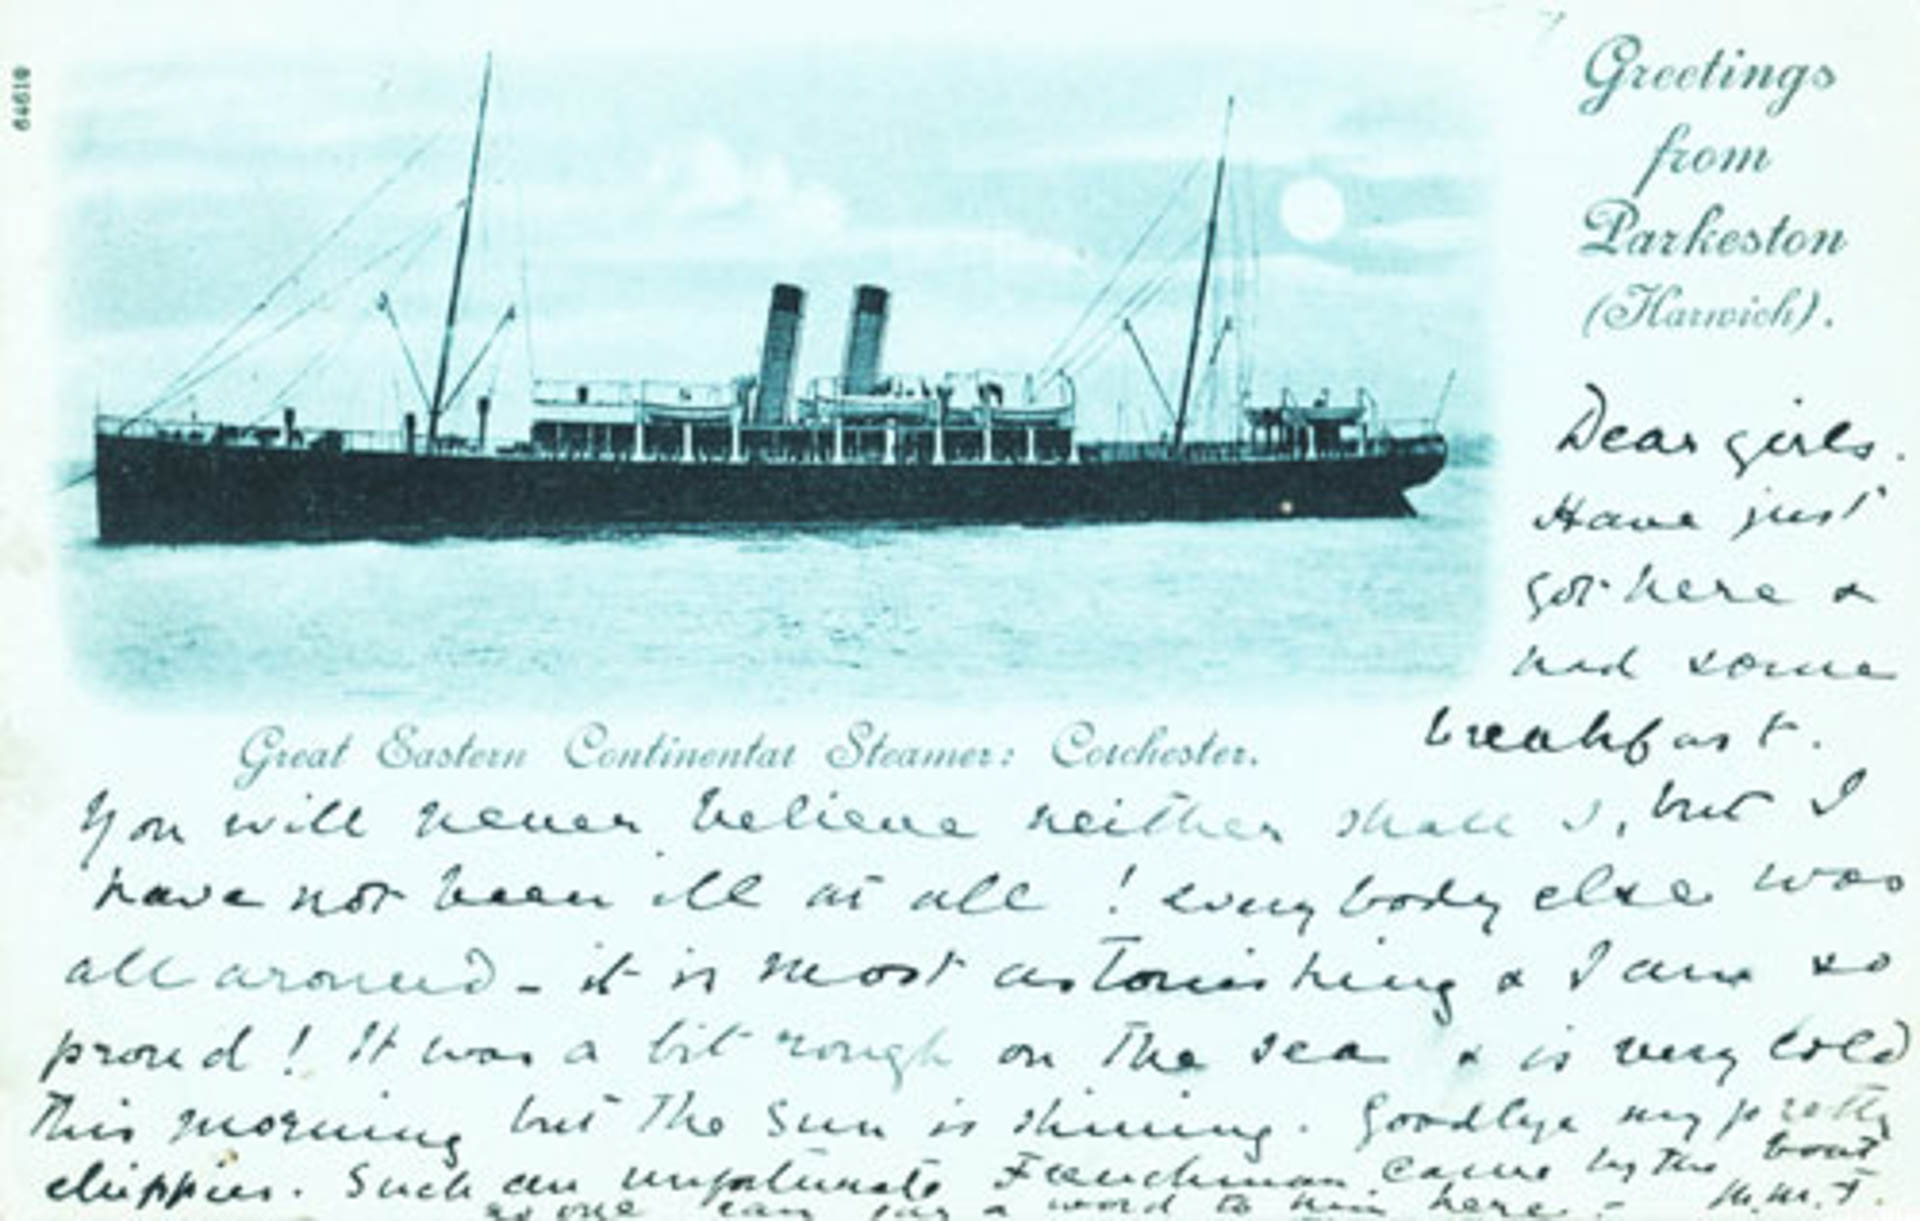 64618
Greetings
from
Parkeston
(Harwich).
Great Eastern Continental Steamer: Colchester.
Dear girls.
Have just
got here &
had some
breakfast.
You will never believe neither shall I, but I
have not been ill at all! everybody else was
all around - it is most astonishing & I am so
proud! It was a bit rough on the sea & is very cold
this morning but the sun is shining. Goodbye my pretty
chippies. Such an unfortunate Frenchman came by the boat
no one can say a word to him here - M.M.T.